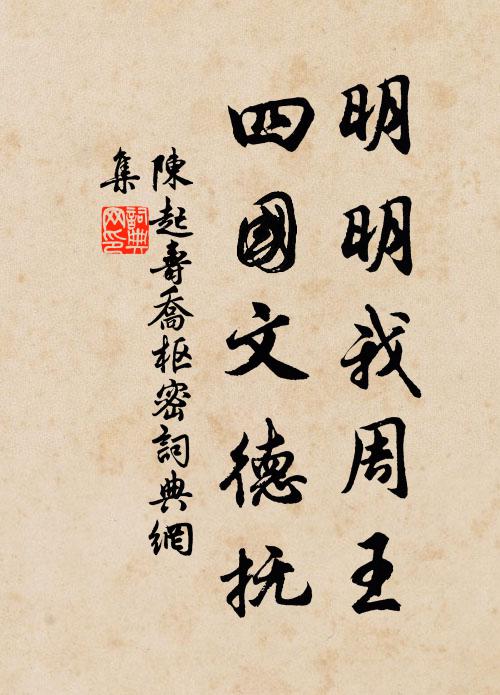 明明我周王
四國文德抚
陳起壽喬枢密詞典網
集
詞典
网印